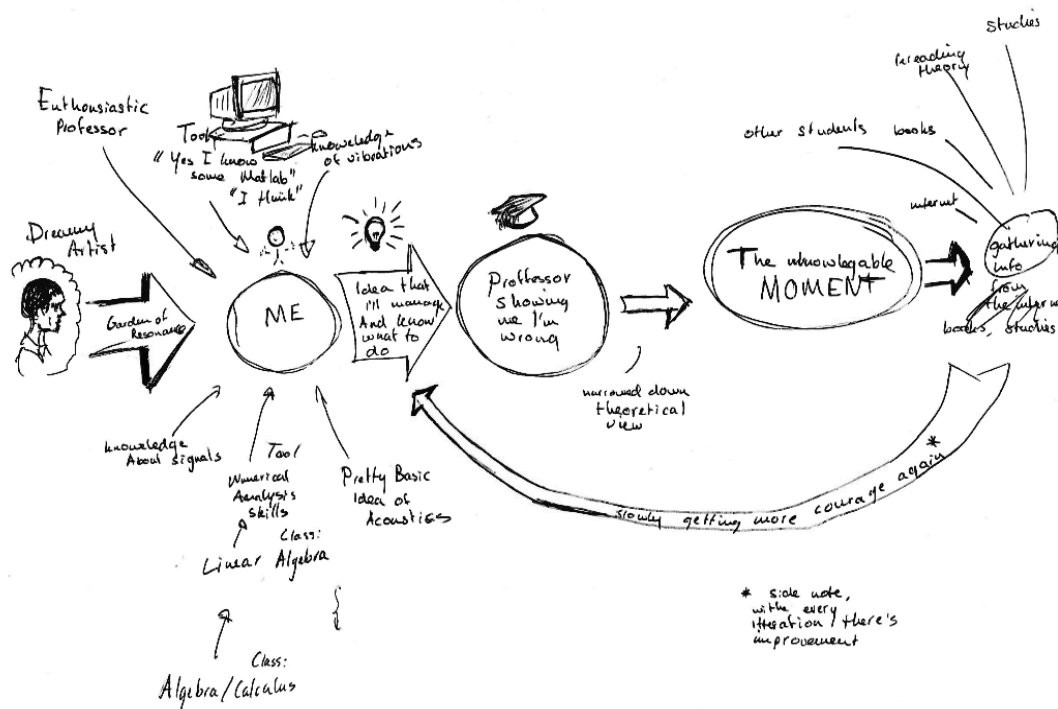 Enthousiastic
Professor
Tool
"Yes I know
some Matlab"
"I think"
knowledge
of vibrations
Dreamy
Artist
Garden of
Resonance
ME
Idea that
I'll manage
And know
what to
do
Proffessor
showing
me I'm
wrong
narrowed down
theoretical
view
The
MOMENT
studies
rereading
theory
other students
books
internet
gathering
info
from
the
books, studies
slowly getting more courage again *
knowledge
About signals
Tool
Numerical
Analysis
skills
Pretty Basic
Idea of
Acoustics
Class:
Linear Algebra
{
Class:
Algebra/Calculus
* side note,
with every
itteration, there's
improvement